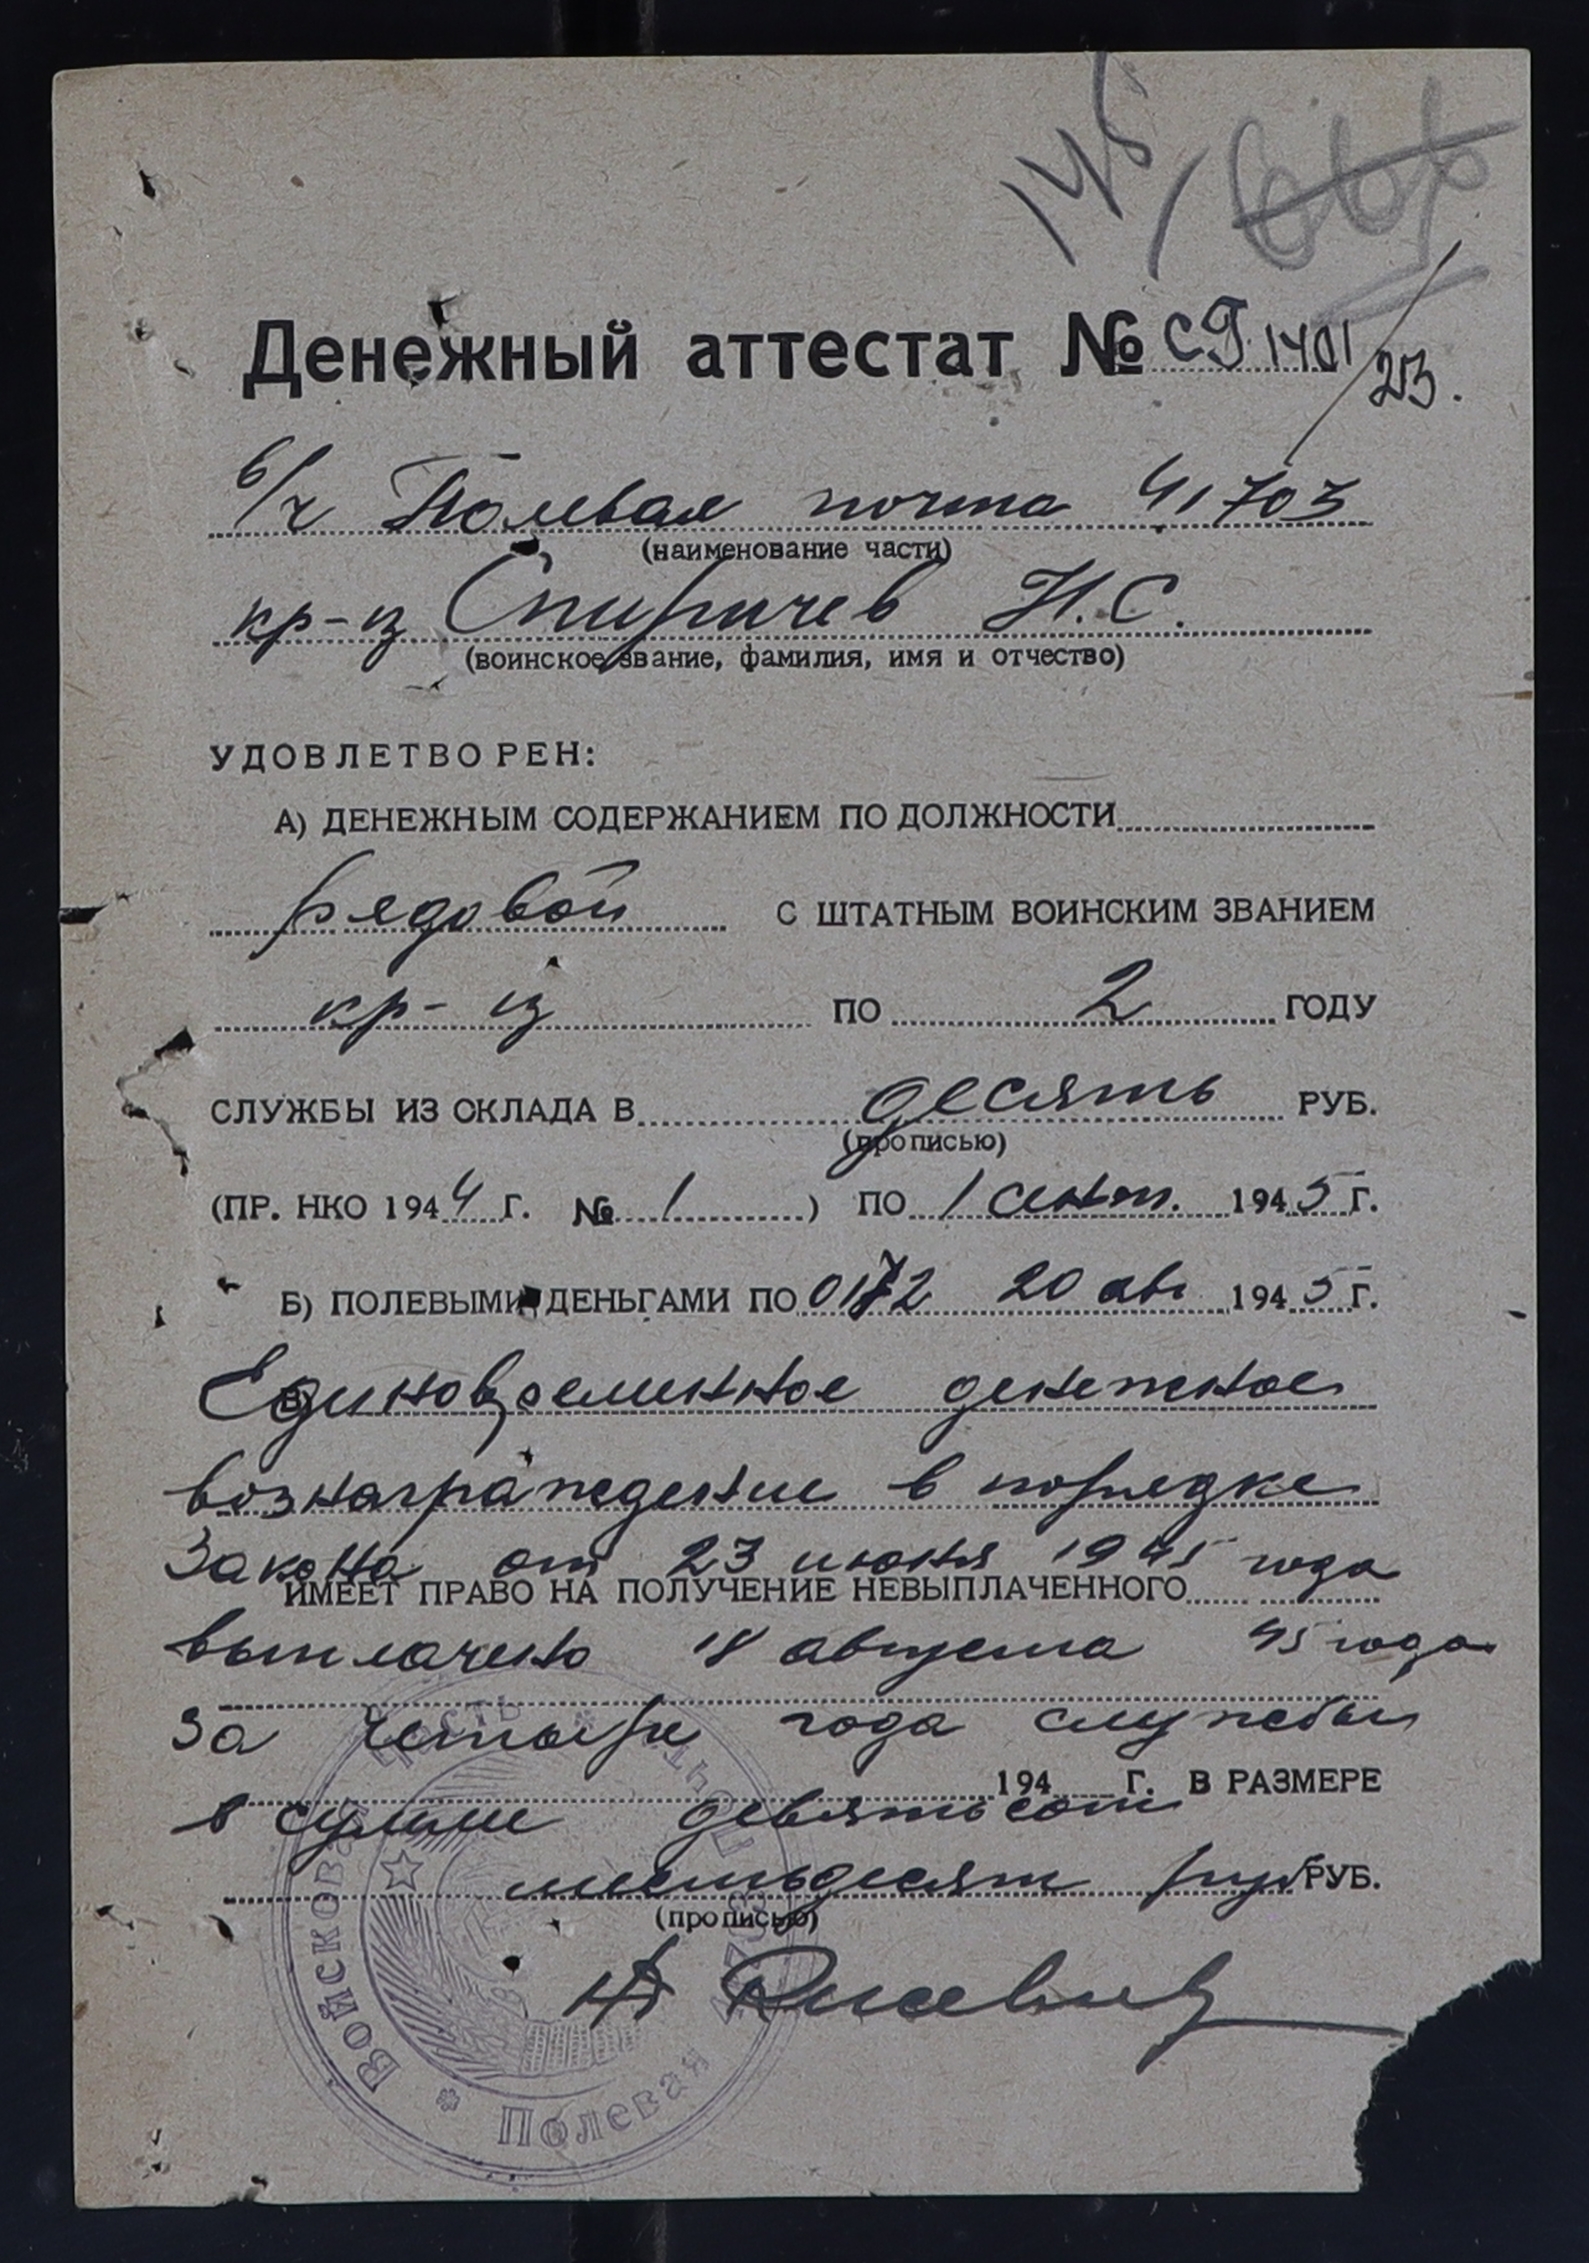 Денежный аттестат № СГ. 1401/213.
в/ч Полевая почта 41703
(наименование части)
кр-ц Спиричев Н.С.
(воинское звание, фамилия, имя и отчество)
УДОВЛЕТВОРЕН:
А) ДЕНЕЖНЫМ СОДЕРЖАНИЕМ ПО ДОЛЖНОСТИ
рядовой С ШТАТНЫМ ВОИНСКИМ ЗВАНИЕМ
кр-ц ПО 2 ГОДУ
СЛУЖБЫ ИЗ ОКЛАДА В десять РУБ.
(прописью)
(ПР. НКО 1944 Г. № 1) ПО 1 сент. 1945 Г.
Б) ПОЛЕВЫМИ ДЕНЬГАМИ ПО 0172 20 авг 1945 Г.
Единовременное денежное
вознаграждение в порядке
Закона от 23 июня 1945 года
ИМЕЕТ ПРАВО НА ПОЛУЧЕНИЕ НЕВЫПЛАЧЕННОГО
выплачено 18 августа 45 года
За четыре года службы
194 Г. В РАЗМЕРЕ
в сумме девятьсот
шестьдесят руб РУБ.
(прописью)
Войсковая часть
Полевая почта 41703